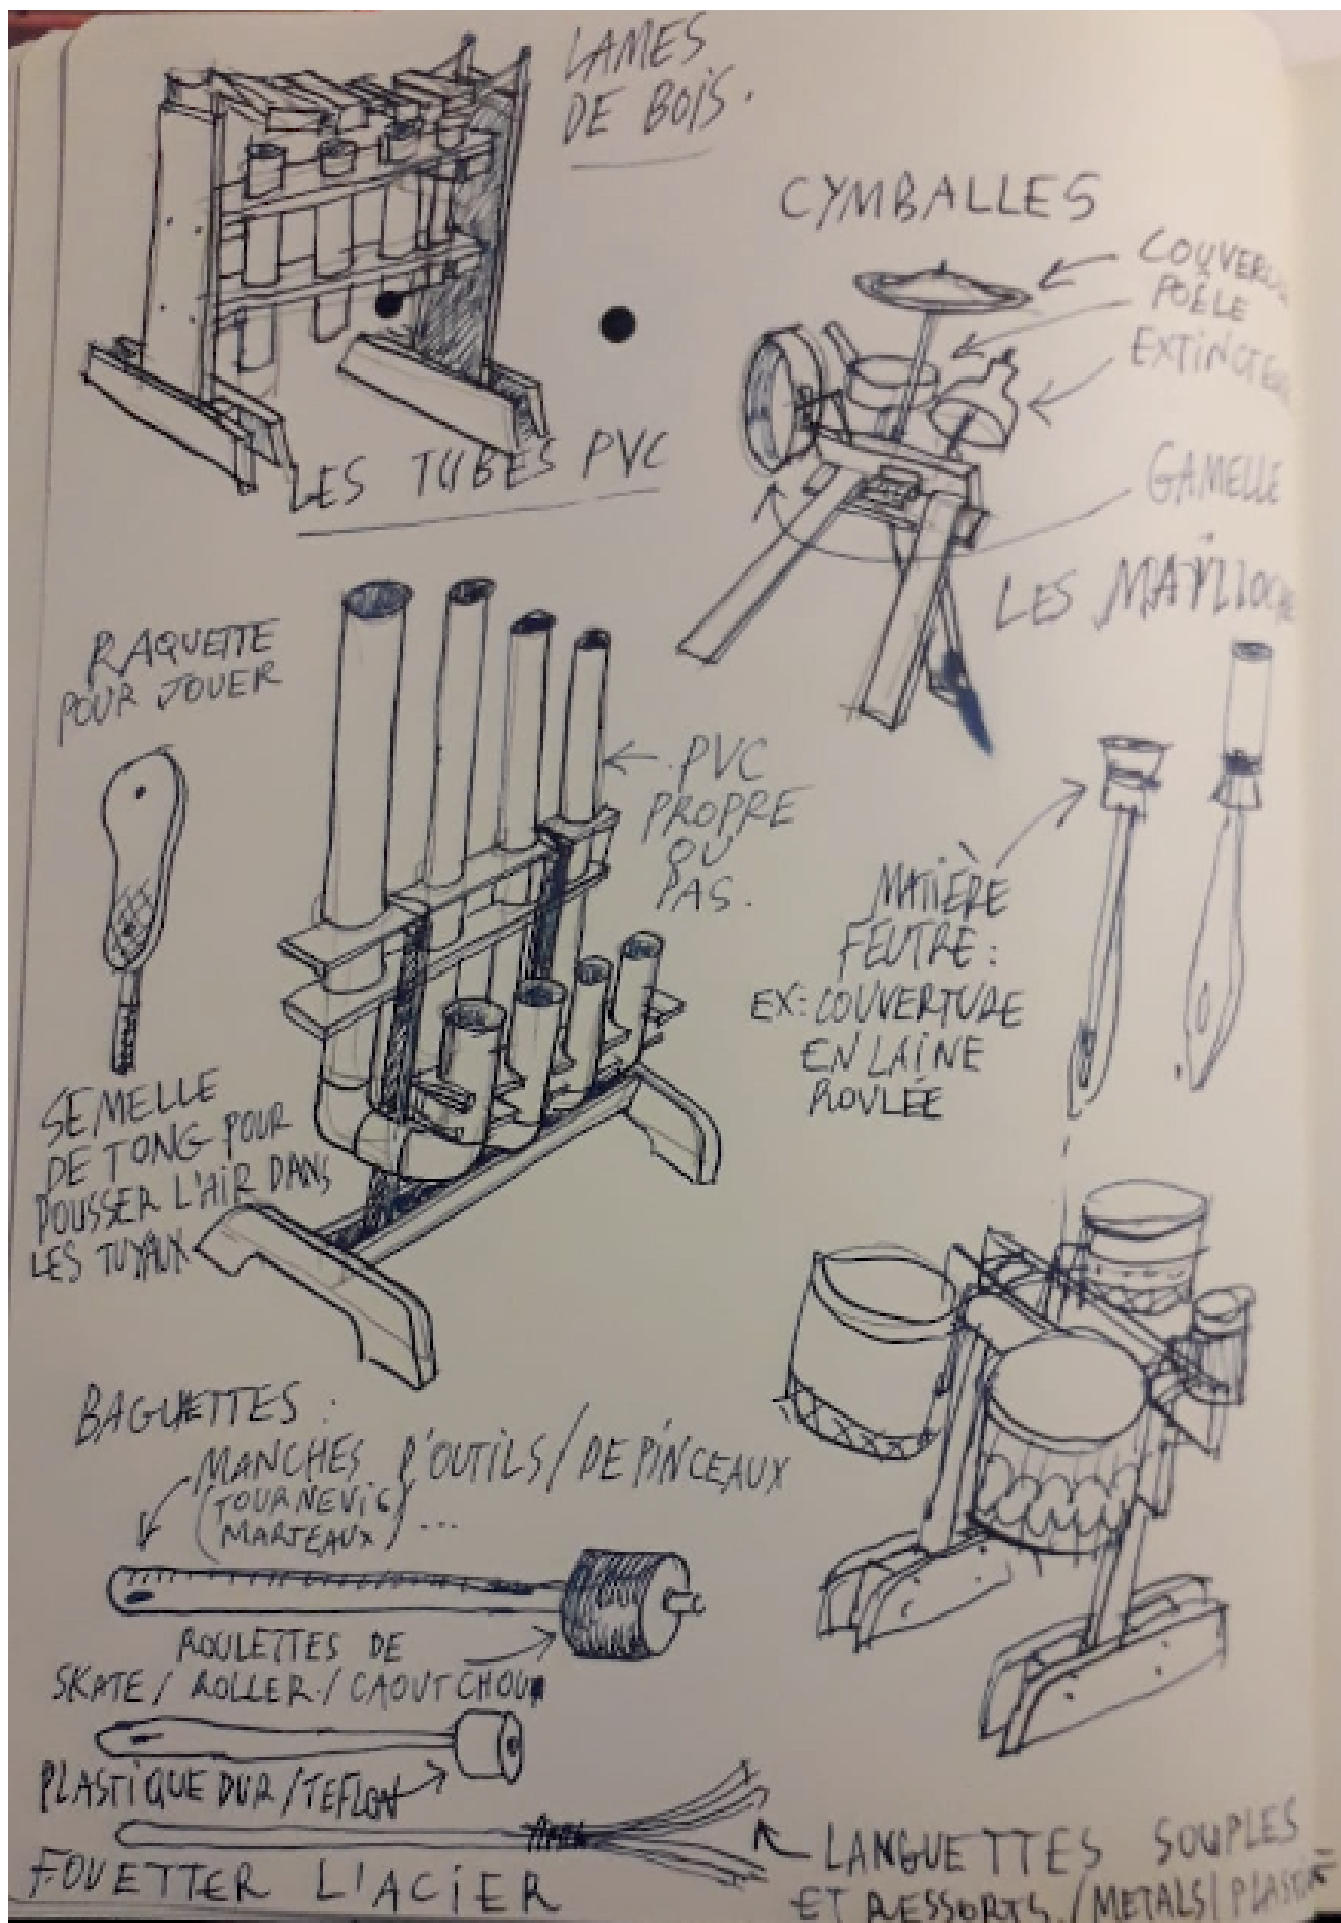 LAMES
DE BOIS.
CYMBALLES
POÊLE
GAMELLE
LES TUBES PVC
LES
RAQUETTE
POUR JOUER
PVC
PROPRE
OU
PAS.
MATIÈRE
FEUTRE:
EX: COUVERTURE
EN LAINE
ROULÉE
SEMELLE
DE TONG POUR
POUSSER L'AIR DANS
LES TUYAUX
BAGUETTES:
MANCHES D'OUTILS/DE PINCEAUX
(TOURNEVIS
MARTEAUX) ...
ROULETTES DE
SKATE/ROLLER/CAOUTCHOUC
PLASTIQUE DUR/TEFLON
FOUETTER L'ACIER
LANGUETTES SOUPLES
ET RESSORTS./METALS/